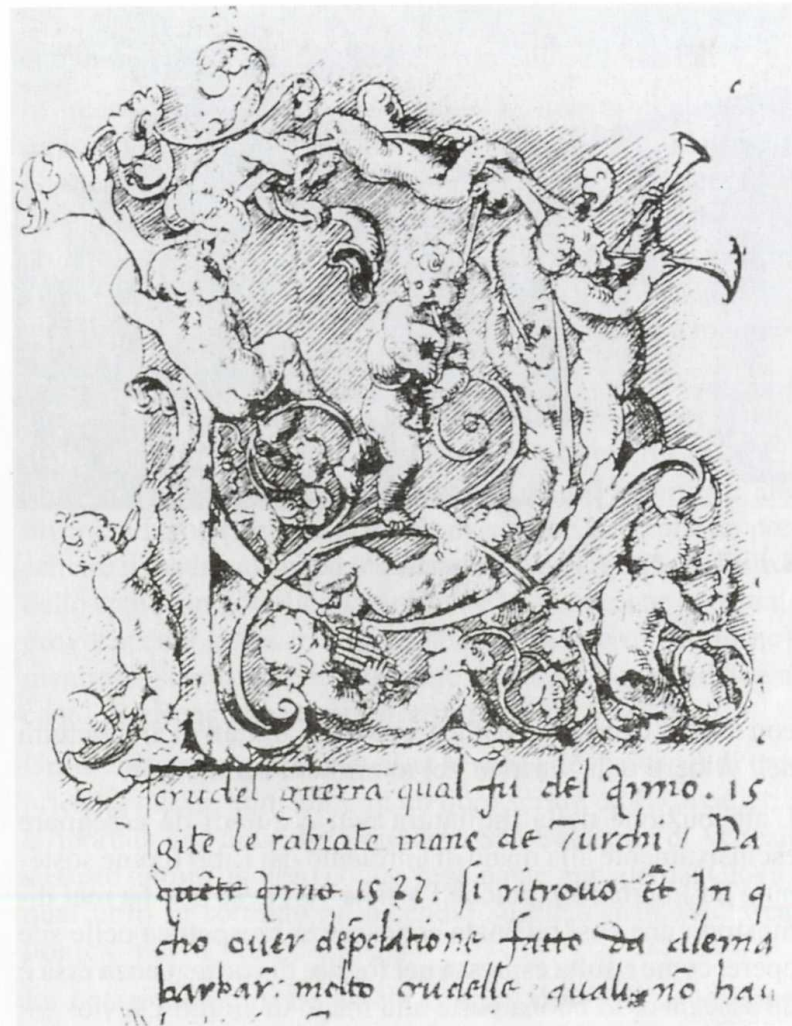 crudel guerra qual fu del Anno. 15
gite le rabiate mane de Turchi / Da
quēte Anno 1527. si ritrouo et In q
cho ouer dēpdatione fatto da alema
barbar. molto crudelle, quali, no hau